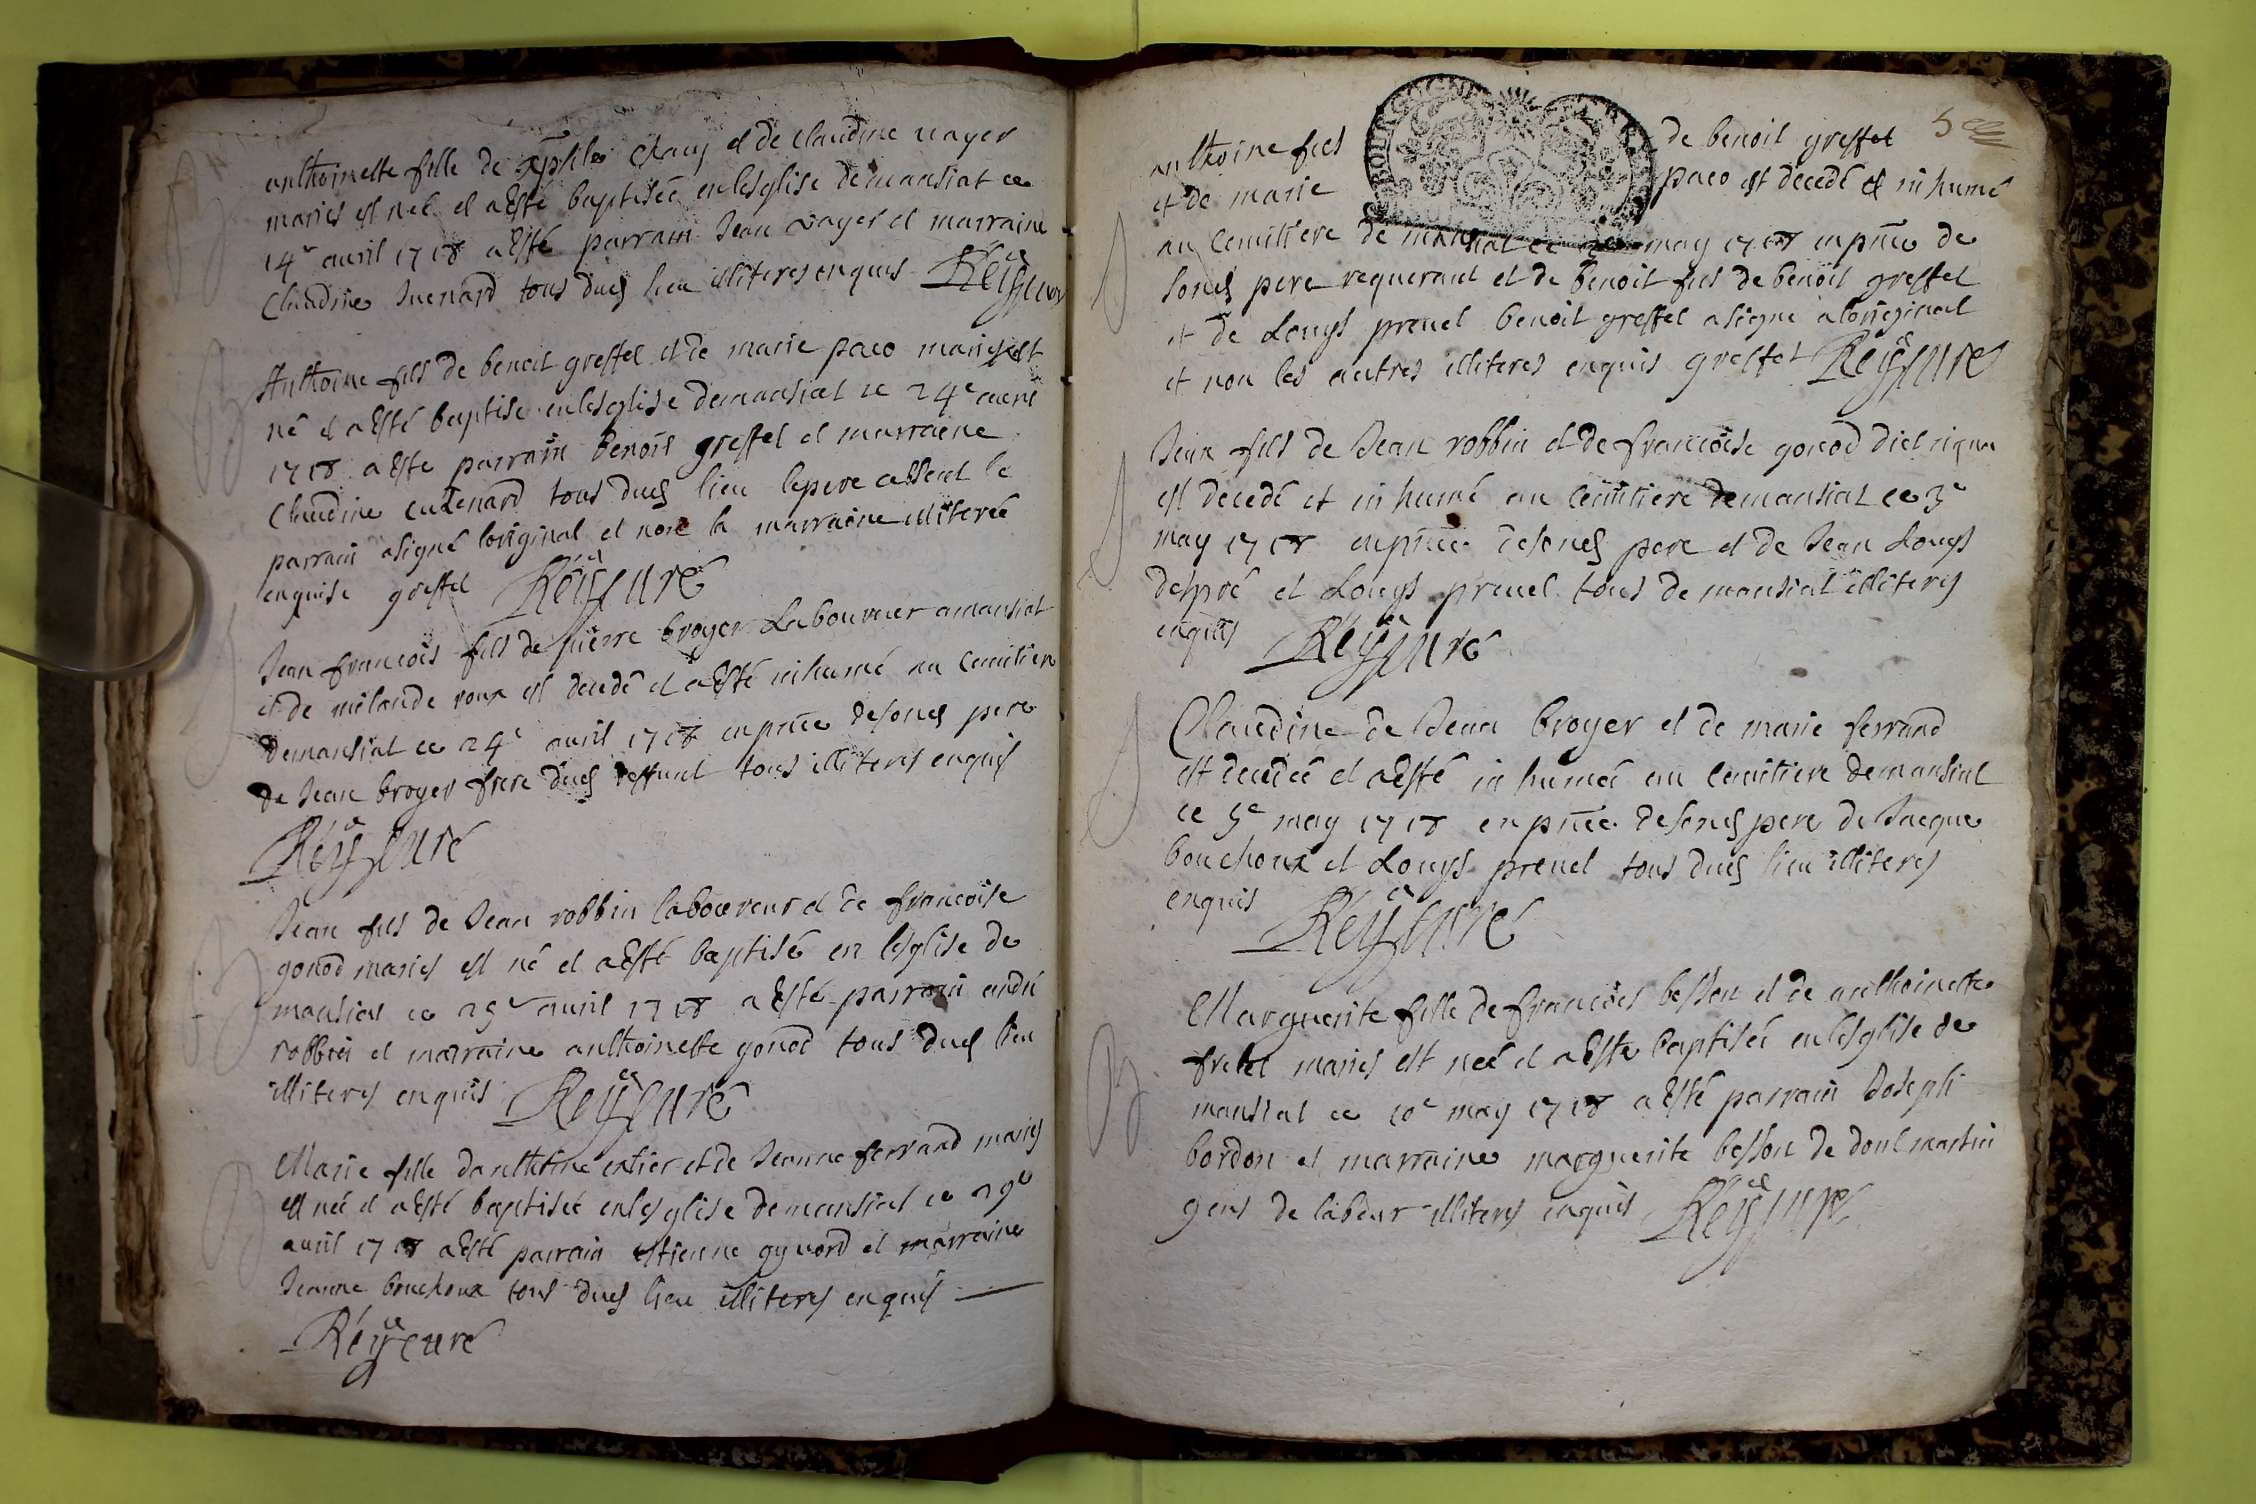 anthoinette fille de chacy et de claudine vayer
mariés est neé et aesté baptiseé en lesglise de mansiat ce
14e avril 1718 aesté parrain Jean vayer et marraine
Claudine Juenard tous dud lieu illiterés enquis Rey curé
Anthoine fils de benoit greffet et de marie paco mariés est
né et aesté baptise en lesglise demansiat ce 24e avril
1718 aeste parrain benoit greffet et marraine
Claudine cuzenard tous dud lieu lepere absent le
parrain asigné loriginal et non la marraine illitereé
enquise greffet Rey curé
Jean francois fils de pierre broyer Laboureur amansiat
et de roux est decedé et aesté inhumé au cemitiere
demansiat ce 24e avril 1718 en pnce desond pere
de Jean broyer frere dud deffunt tous illiterés enquis
Rey curé
Jean fils de Jean robbin laboureur et de francoise
gonod mariés est né et aesté baptisé en lésglise de
mansiat ce 29e avril 1718 aesté parrain andré
robbin et marraine anthoinette gonod tous dud lieu
illiterés enquis Rey curé
Marie fille danthoine entier et de Jeanne ferrand mariés
est neé et aesté baptiseé enlesglise demansiat ce 29e
avril 1718 aesté parrain estienne et marraine
Jeanne bouchoux tous dud lieu illiterés enquis
Rey curé
5
anthoine fils de benoit greffet
et de marie paco est decedé et inhumé
au Cemitiere de mansiat ce may 1718 en pnce de
sond pere requerant et de benoit fils de benoit greffet
et de Louys prevel benoit greffet asigné aloriginal
et non les autres illiterés enquis greffet Rey curé
Jean fils de Jean robbin et de francoise gonod
est decedé et inhumé au cemitiere demansiat ce 3e
may 1718 enpnce desond pere et de Jean Louys
despré et Louys prevel tous de mansiat illiterés
enquis Rey curé
Claudine de Jean broyer et de marie ferrand
est decedeé et aesté inhumeé au cemitiere demansiat
ce 5e may 1718 en pnce desond pere de Jacque
bouchoux et Louys prevel tous dud lieu illiterés
enquis Rey curé
Marguerite fille defrancois besson et de anthoinette
mariés est neé et aeste baptiseé enlesglise de
mansiat ce 10e may 1718 aesté parrain Joseph
bordon et marraine marguerite besson de domlmartin
gens de labeur illiterés enquis Rey curé